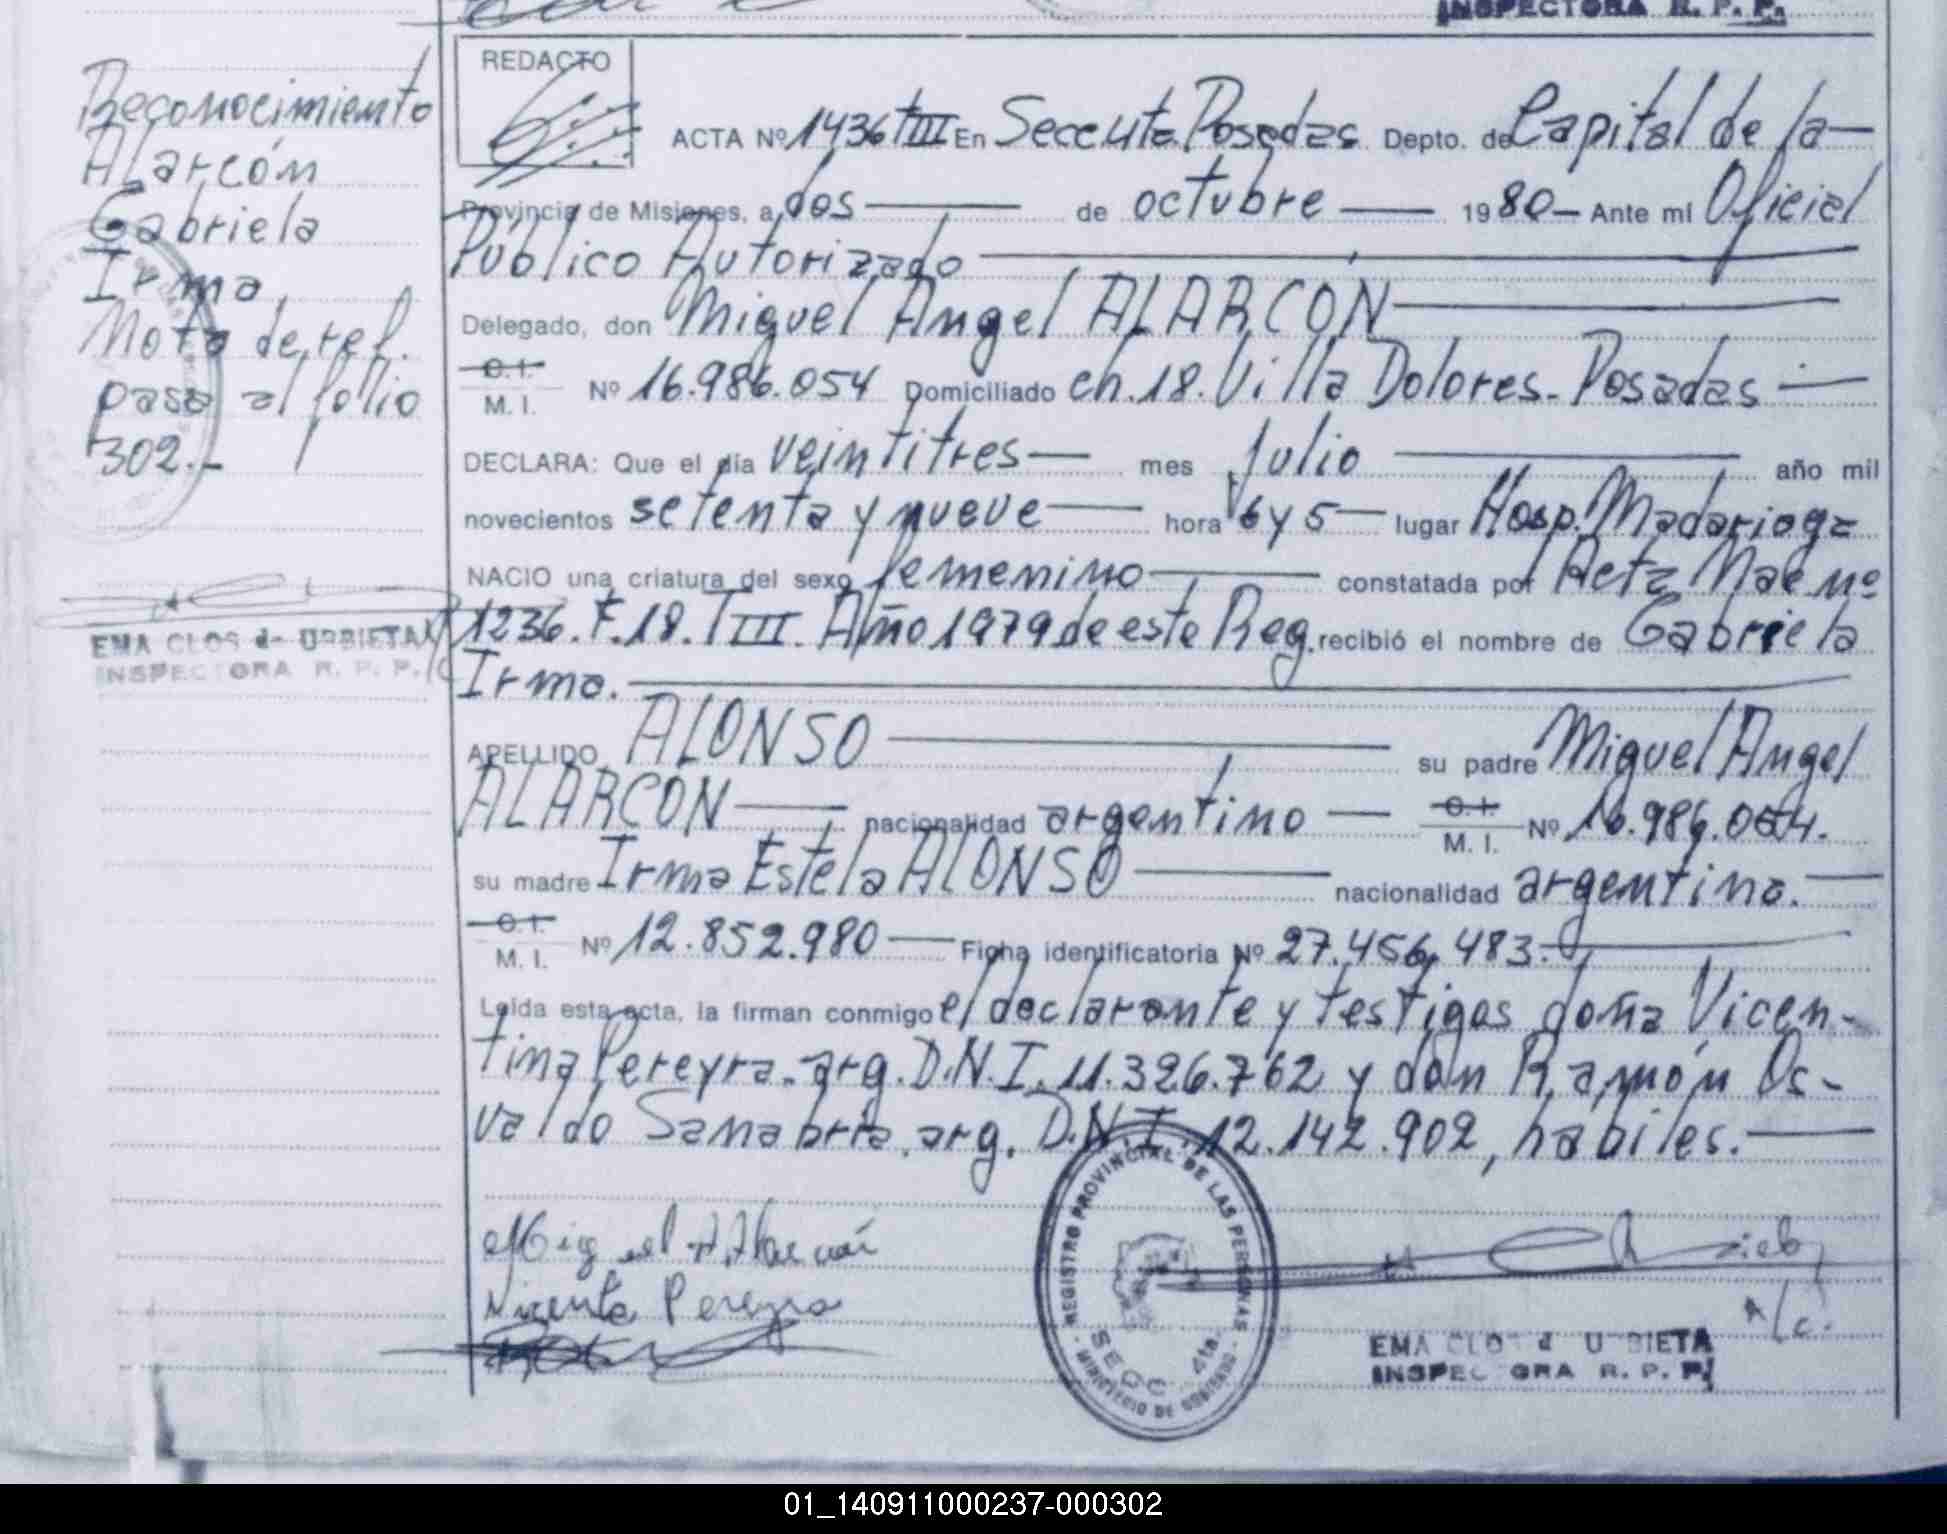 INSPECTORA R. P. P.
Reconocimiento
Alarcón
Gabriela
Irma
Nota de ref.
pasa al folio
302.-
EMA CLOS de URBIETA
INSPECTORA R. P. P.
REDACTO
ACTA Nº 1436 TIII En Secc. 4ta. Posadas Depto. de Capital de la
Provincia de Misiones, a dos de octubre 1980 Ante mí Oficial
Público Autorizado
Delegado, don Miguel Angel ALARCON
C.I.
M. I. Nº 16.986.054 Domiciliado ch. 18. Villa Dolores - Posadas
DECLARA: Que el día veintitres mes Julio año mil
novecientos setenta y nueve hora 6 y 5 lugar Hosp. Madariaga
NACIO una criatura del sexo femenino constatada por Acta Nac nº
1236. F. 18. TIII. Año 1979 de este Reg. recibió el nombre de Gabriela
Irma.
APELLIDO ALONSO su padre Miguel Angel
ALARCON nacionalidad argentino C.I. M. I. Nº 16.986.054.
su madre Irma Estela ALONSO nacionalidad argentina.
C.I.
M. I. Nº 12.852.980 Ficha identificatoria Nº 27.456.483.
Leída esta acta, la firman conmigo el declarante y testigos doña Vicen-
tina Pereyra, arg. D.N.I. 11.326.762 y don Ramón Os-
valdo Sanabria, arg. D.N.I. 12.142.902, habiles.
Miguel A. Alarcón
Pereyra
REGISTRO PROVINCIAL DE LAS PERSONAS
SECC. 4ta.
MINISTERIO DE GOBIERNO
a/c.
EMA CLOS de URBIETA
INSPECTORA R. P. P.
01_140911000237-000302